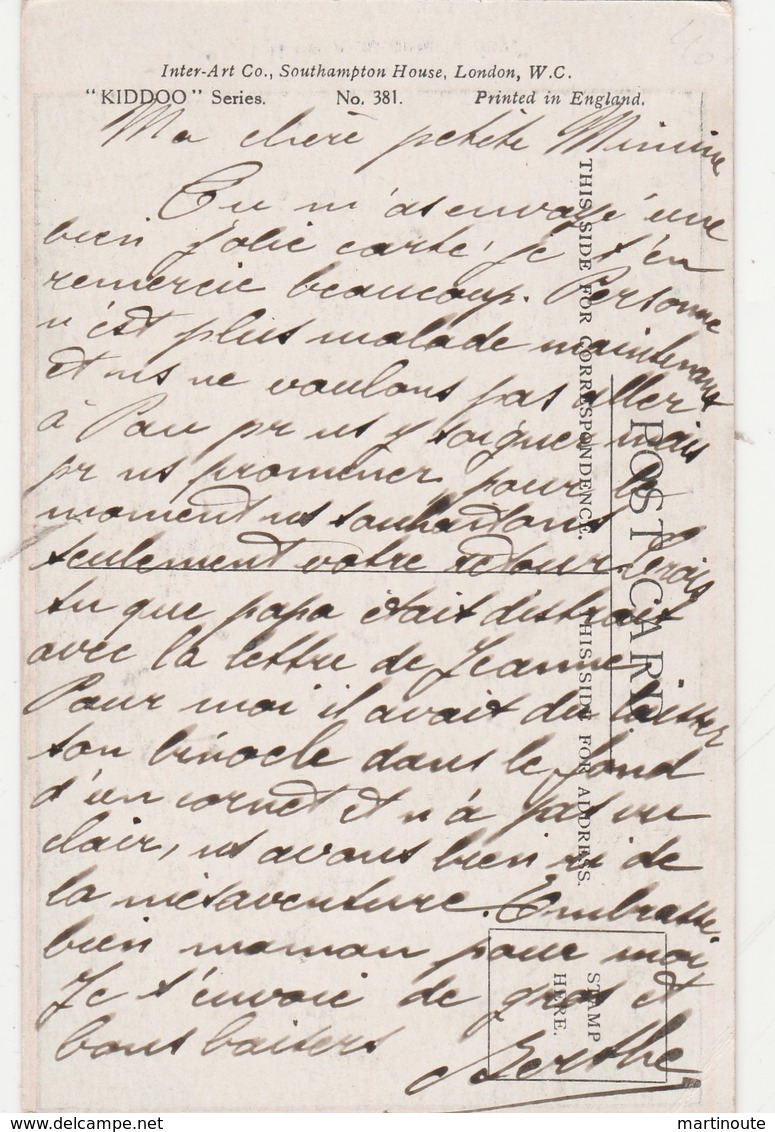 Inter-Art Co., Southampton House, London, W.C.
"KIDDOO" Series. No. 381. Printed in England.
Ma chère petite Mimine
Tu m'as envoyé une
bien jolie carte, je t'en
remercie beaucoup. Personne
n'est plus malade maintenant
et ns ne voulons pas aller
à Pau pr ns y soigner mais
pr ns promener pour le
moment ns souhaitons
seulement votre retour. Crois
tu que papa était distrait
avec la lettre de Jeanne
Pour moi il avait du laisser
son binocle dans le fond
d'un cornet et n'a pas vu
clair, ns avons bien ri de
la mésaventure. Embrasse
bien maman pour moi
Je t'envoie de gros et
bons baisers
Berthe
THIS SIDE FOR CORRESPONDENCE.
THIS SIDE FOR ADDRESS.
POST CARD.
STAMP
HERE.
delcampe.net
martinoute